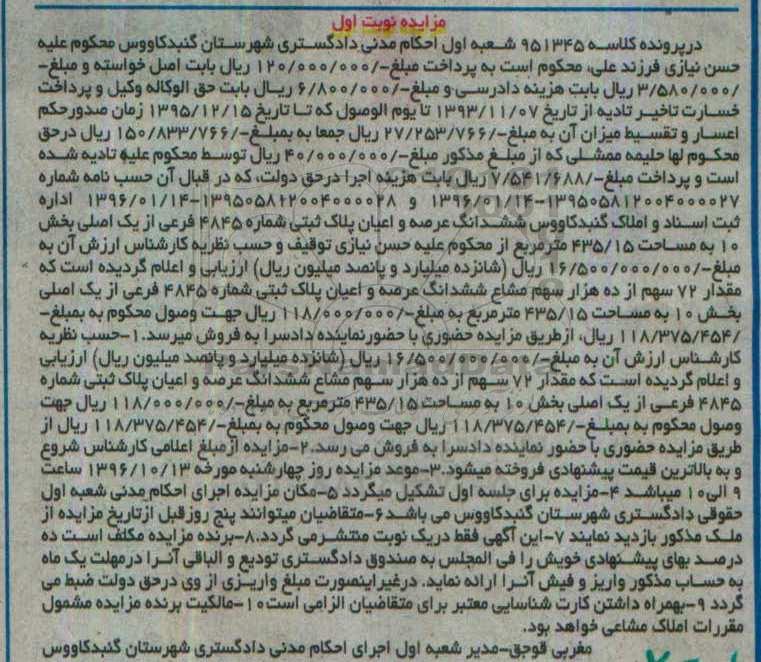 مزایده نوبت اول
درپرونده کلاسه ۹۵۱۳۴۵ شعبه اول احکام مدنی دادگستری شهرستان گنبدکاووس محکوم علیه
حسن نیازی فرزند علی، محکوم است به پرداخت مبلغ-/۱۲۰/۰۰۰/۰۰۰ ریال بابت اصل خواسته و مبلغ-
/۳/۵۸۰/۰۰۰ ریال بابت هزینه دادرسی و مبلغ-/۶/۸۰۰/۰۰۰ ریال بابت حق الوکاله وکیل و پرداخت
خسارت تاخیر تادیه از تاریخ ۱۳۹۳/۱۱/۰۷ تا یوم الوصول که تا تاریخ ۱۳۹۵/۱۲/۱۵ زمان صدورحکم
اعسار و تقسیط میزان آن به مبلغ-/۲۷/۲۵۳/۷۶۶ ریال جمعا به بمبلغ-/۱۵۰/۸۳۳/۷۶۶ ریال درحق
محکوم لها حلیمه ممشلی که از مبلغ مذکور مبلغ-/۴۰/۰۰۰/۰۰۰ ریال توسط محکوم علیه تادیه شده
است و پرداخت مبلغ-/۷/۵۴۱/۶۸۸ ریال بابت هزینه اجرا درحق دولت، که در قبال آن حسب نامه شماره
۱۳۹۵۰۵۸۱۲۰۰۴۰۰۰۰۲۷-۱۳۹۶/۰۱/۱۴ و ۱۳۹۵۰۵۸۱۲۰۰۴۰۰۰۰۲۸-۱۳۹۶/۰۱/۱۴ اداره
ثبت اسناد و املاک گنبدکاووس ششدانگ عرصه و اعیان پلاک ثبتی شماره ۴۸۴۵ فرعی از یک اصلی بخش
۱۰ به مساحت ۴۳۵/۱۵ مترمربع از محکوم علیه حسن نیازی توقیف و حسب نظریه کارشناس ارزش آن به
مبلغ-/۱۶/۵۰۰/۰۰۰/۰۰۰ ریال (شانزده میلیارد و پانصد میلیون ریال) ارزیابی و اعلام گردیده است که
مقدار ۷۲ سهم از ده هزار سهم مشاع ششدانگ عرصه و اعیان پلاک ثبتی شماره ۴۸۴۵ فرعی از یک اصلی
بخش ۱۰ به مساحت ۴۳۵/۱۵ مترمربع به مبلغ-/۱۱۸/۰۰۰/۰۰۰ ریال جهت وصول محکوم به بمبلغ-
/۱۱۸/۳۷۵/۴۵۴ ریال، ازطریق مزایده حضوری با حضورنماینده دادسرا به فروش میرسد.۱-حسب نظریه
کارشناس ارزش آن به مبلغ-/۱۶/۵۰۰/۰۰۰/۰۰۰ ریال (شانزده میلیارد و پانصد میلیون ریال) ارزیابی
و اعلام گردیده است که مقدار ۷۲ سهم از ده هزار سهم مشاع ششدانگ عرصه و اعیان پلاک ثبتی شماره
۴۸۴۵ فرعی از یک اصلی بخش ۱۰ به مساحت ۴۳۵/۱۵ مترمربع به مبلغ-/۱۱۸/۰۰۰/۰۰۰ ریال جهت
وصول محکوم به بمبلغ-/۱۱۸/۳۷۵/۴۵۴ ریال جهت وصول محکوم به بمبلغ-/۱۱۸/۳۷۵/۴۵۴ ریال از
طریق مزایده حضوری با حضور نماینده دادسرا به فروش می رسد.۲-مزایده ازمبلغ اعلامی کارشناس شروع
و به بالاترین قیمت پیشنهادی فروخته میشود.۳-موعد مزایده روز چهارشنبه مورخه ۱۳۹۶/۱۰/۱۳ ساعت
۹ الی۱۰ میباشد ۴-مزایده برای جلسه اول تشکیل میگردد ۵-مکان مزایده اجرای احکام مدنی شعبه اول
حقوقی دادگستری شهرستان گنبدکاووس می باشد۶-متقاضیان میتوانند پنج روزقبل ازتاریخ مزایده از
ملک مذکور بازدید نمایند ۷-این آگهی فقط دریک نوبت منتشرمی گردد.۸-برنده مزایده مکلف است ده
درصد بهای پیشنهادی خویش را فی المجلس به صندوق دادگستری تودیع و الباقی آنرا درمهلت یک ماه
به حساب مذکور واریز و فیش آنرا ارائه نماید. درغیراینصورت مبلغ واریزی از وی درحق دولت ضبط می
گردد ۹-بهمراه داشتن کارت شناسایی معتبر برای متقاضیان الزامی است۱۰-مالکیت برنده مزایده مشمول
مقررات املاک مشاعی خواهد بود.
مغربی قوجق-مدیر شعبه اول اجرای احکام مدنی دادگستری شهرستان گنبدکاووس